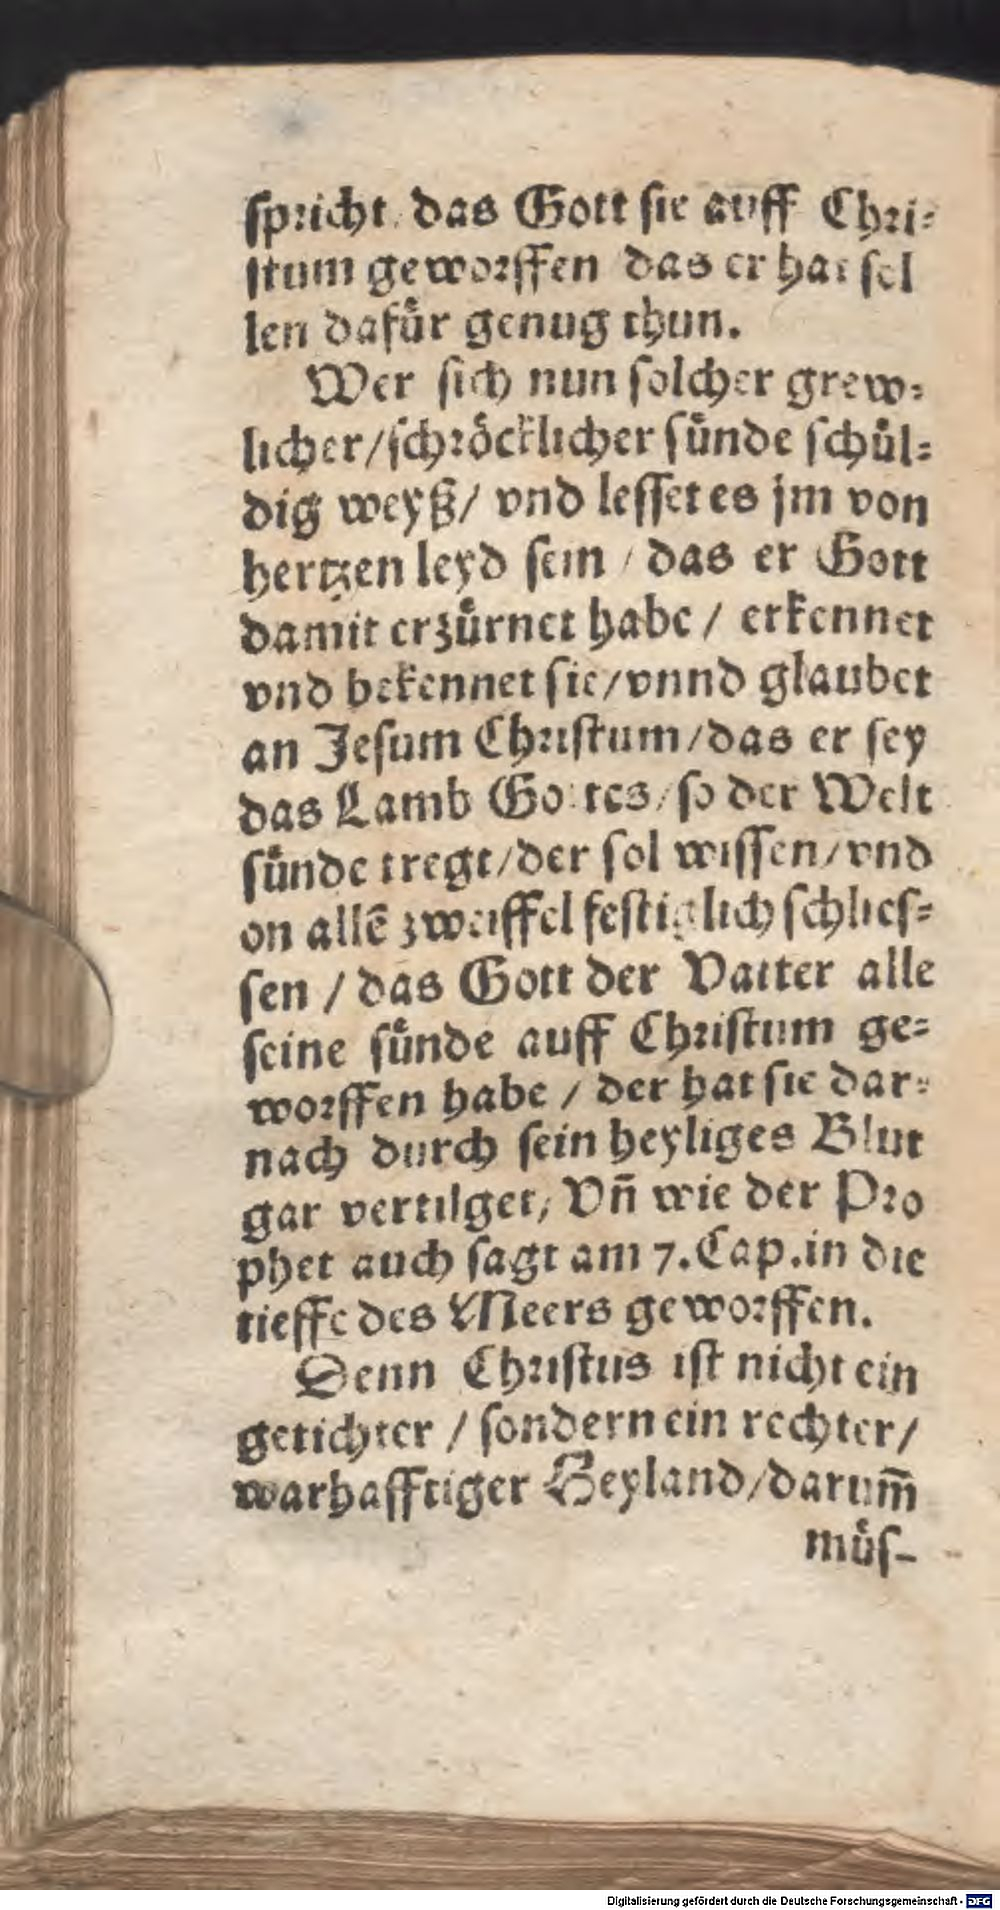 spricht / das Gott sie auff Chri-
stum geworffen das er hat sol
len dafuͤr genug thun.
Wer sich nun solcher grew-
licher / schroͤcklicher suͤnde schuͤl-
dig weyß / vnd lesset es jm von
hertzen leyd sein / das er Gott
damit erzuͤrnet habe / erkennet
vnd bekennet sie / vnnd glaubet
an Jesum Christum / das er sey
das Lamb Gottes / so der Welt
suͤnde tregt / der sol wissen / vnd
on allē zweiffel festiglich schlies-
sen / das Gott der Vatter alle
seine suͤnde auff Christum ge-
worffen habe / der hat sie dar-
nach durch sein heyliges Blut
gar vertilget / Vn̄ wie der Pro
phet auch sagt am 7. Cap. in die
tieffe des Meers geworffen.
Denn Christus ist nicht ein
getichter / sondern ein rechter /
warhafftiger Heyland / darum̄
muͤs-
Digitalisierung gefördert durch die Deutsche Forschungsgemeinschaft - DFG